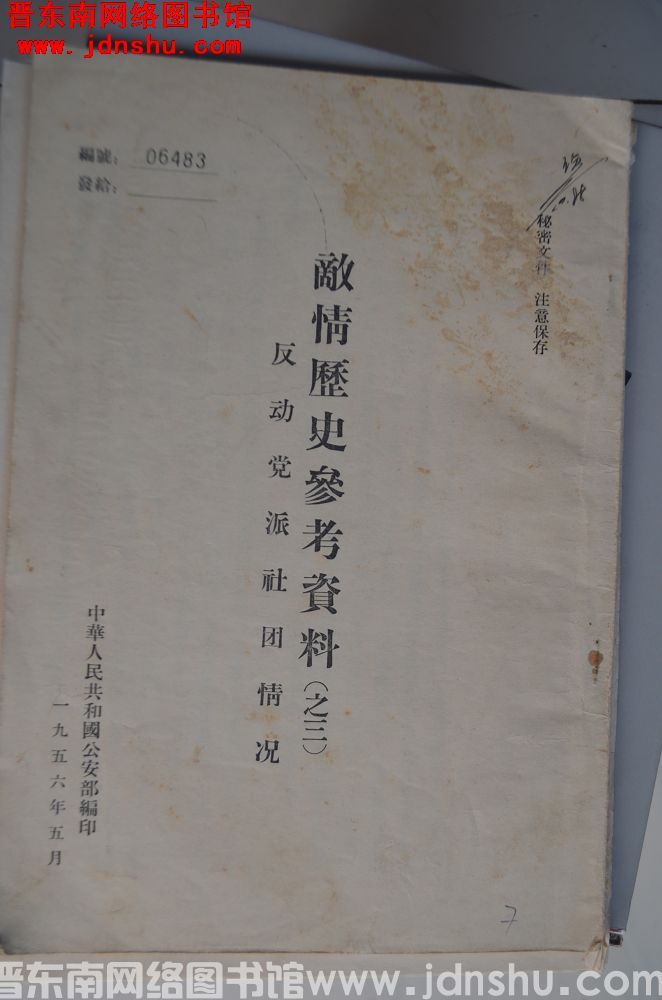 晋东南网络图书馆
www.jdnshu.com
編號：06483
發給：
秘密文件 注意保存
敵情歷史參考資料（之三）
反动党派社团情况
中華人民共和國公安部編印
一九五六年五月
7
晋东南网络图书馆www.jdnshu.com